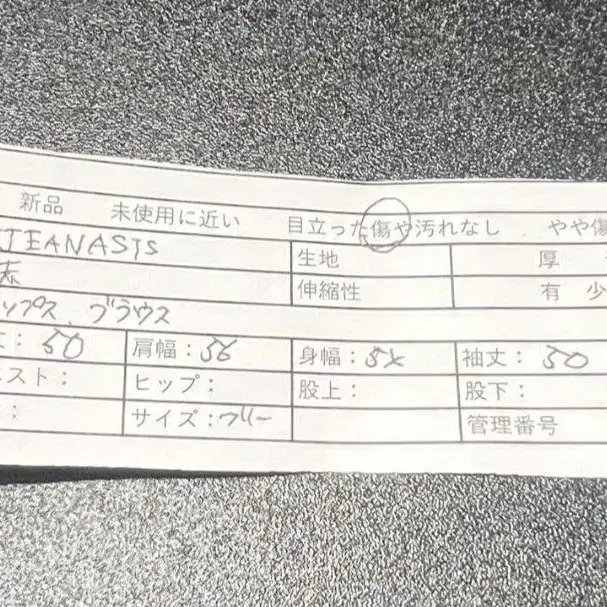 新品 未使用に近い 目立った傷や汚れなし やや傷
JEANASIS 生地 厚
赤 伸縮性 有 少
ップス、ブラウス
丈：50 肩幅：56 身幅：52 袖丈：50
エスト： ヒップ： 股上： 股下：
： サイズ：フリー 管理番号